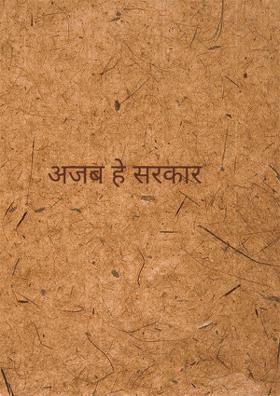 अजब हे सरकार